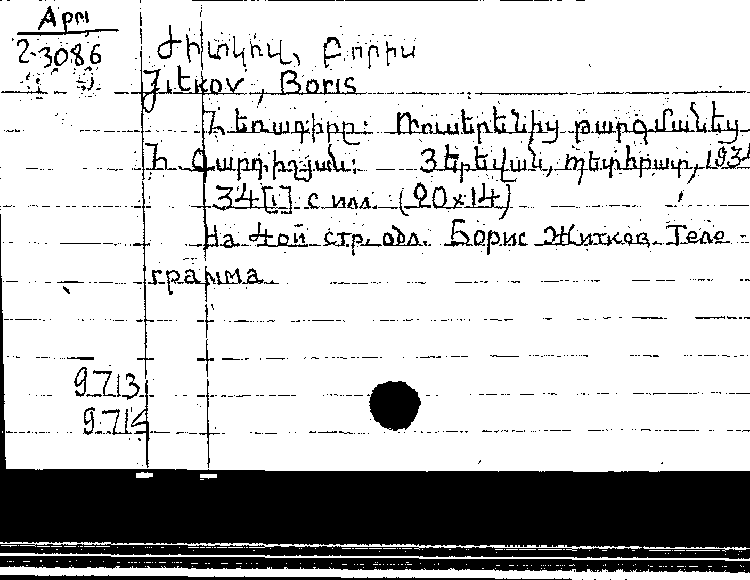 Арт
2-3086
Ժիտկով, Բորիս
Jitkov, Boris
Հեռագիրը: Ռուսերենից թարգմանեց
Հ. Գարդիչյան: Յերեվան, պետհրատ, 1934
34[1] с илл. (20x14)
На 4ой стр. обл. Борис Житков. Теле-
грамма.
9713
9714